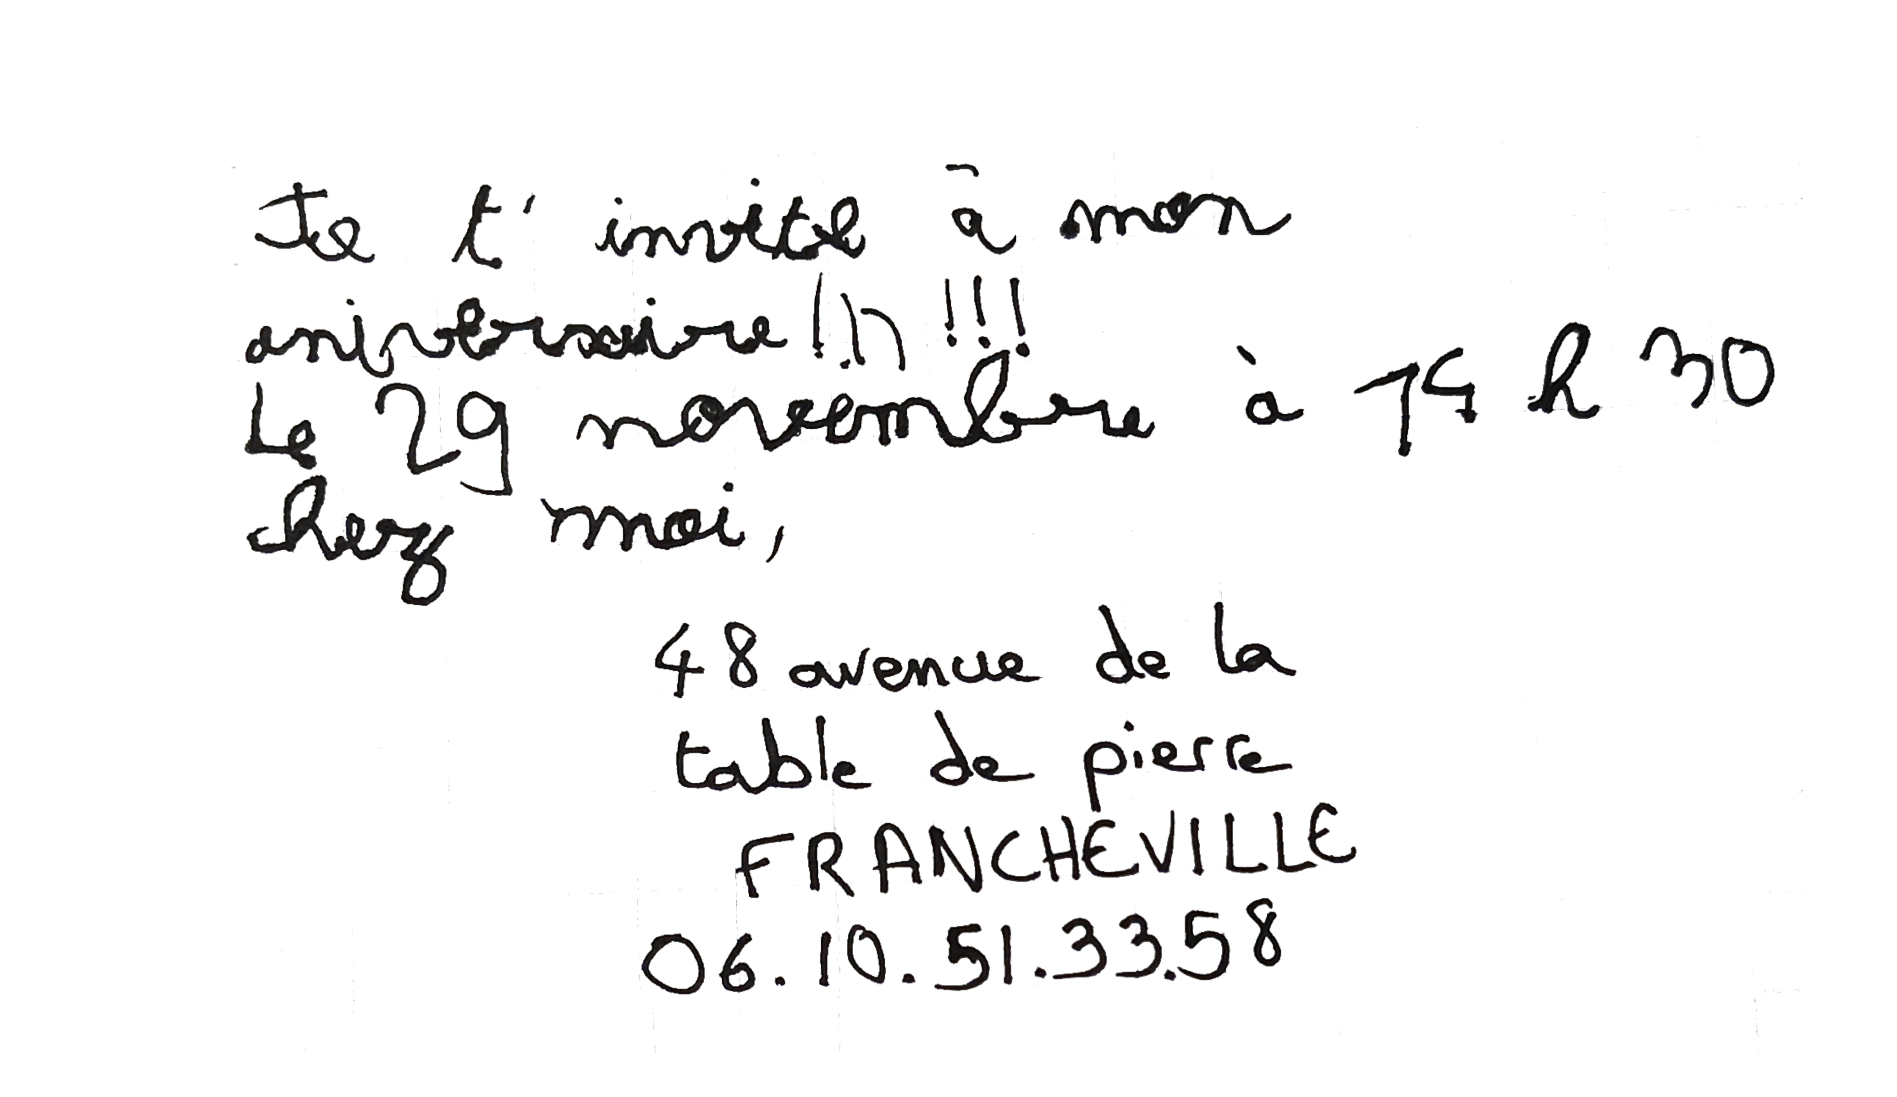 Je t'invite à mon
aniversaire !!! !!!
Le 29 novembre à h 30
chez moi,
48 avenue de la
table de pierre
FRANCHEVILLE
06.10.51.33.58